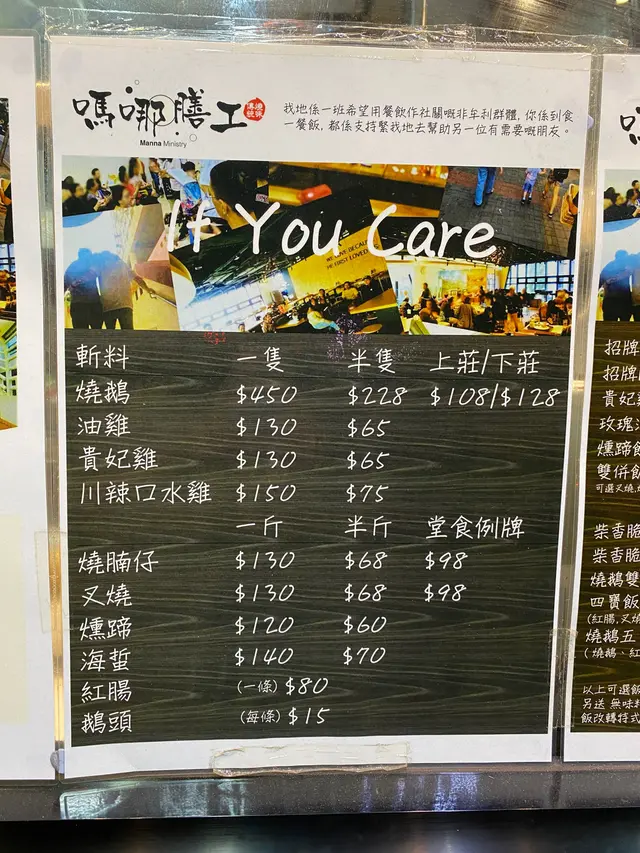 嗎哪膳工
傳統燒味
Manna Ministry
我地係一班希望用餐飲作社關嘅非牟利群體, 你係到食
一餐飯, 都係支持緊我地去幫助另一位有需要嘅朋友。
If You Care
斬料 一隻 半隻 上莊/下莊
燒鵝 $450 $228 $108/$128
油雞 $130 $65
貴妃雞 $130 $65
川辣口水雞 $150 $75
一斤 半斤 堂食例牌
燒腩仔 $130 $68 $98
叉燒 $130 $68 $98
燻蹄 $120 $60
海蜇 $140 $70
紅腸 (一條) $80
鵝頭 (每條) $15
招牌
招牌
貴妃
玫瑰
燻蹄飯
雙併飯
可選叉燒,
柴香脆
柴香脆
燒鵝雙
四寶飯
(紅腸,叉燒
燒鵝五
(燒鵝、紅
以上可選飯
另送 無味
飯改轉特式